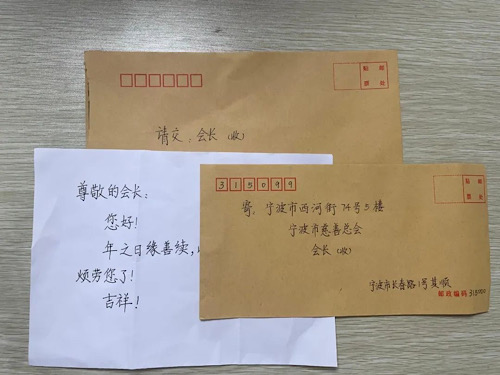 贴 邮
票 处
请交:会长(收)
尊敬的会长:
您好!
年之日缘善续,
烦劳您了!
吉祥!
315099
贴 邮
票 处
寄:宁波市西河街74号5楼
宁波市慈善总会
会长(收)
宁波市长春路1号
邮政编码